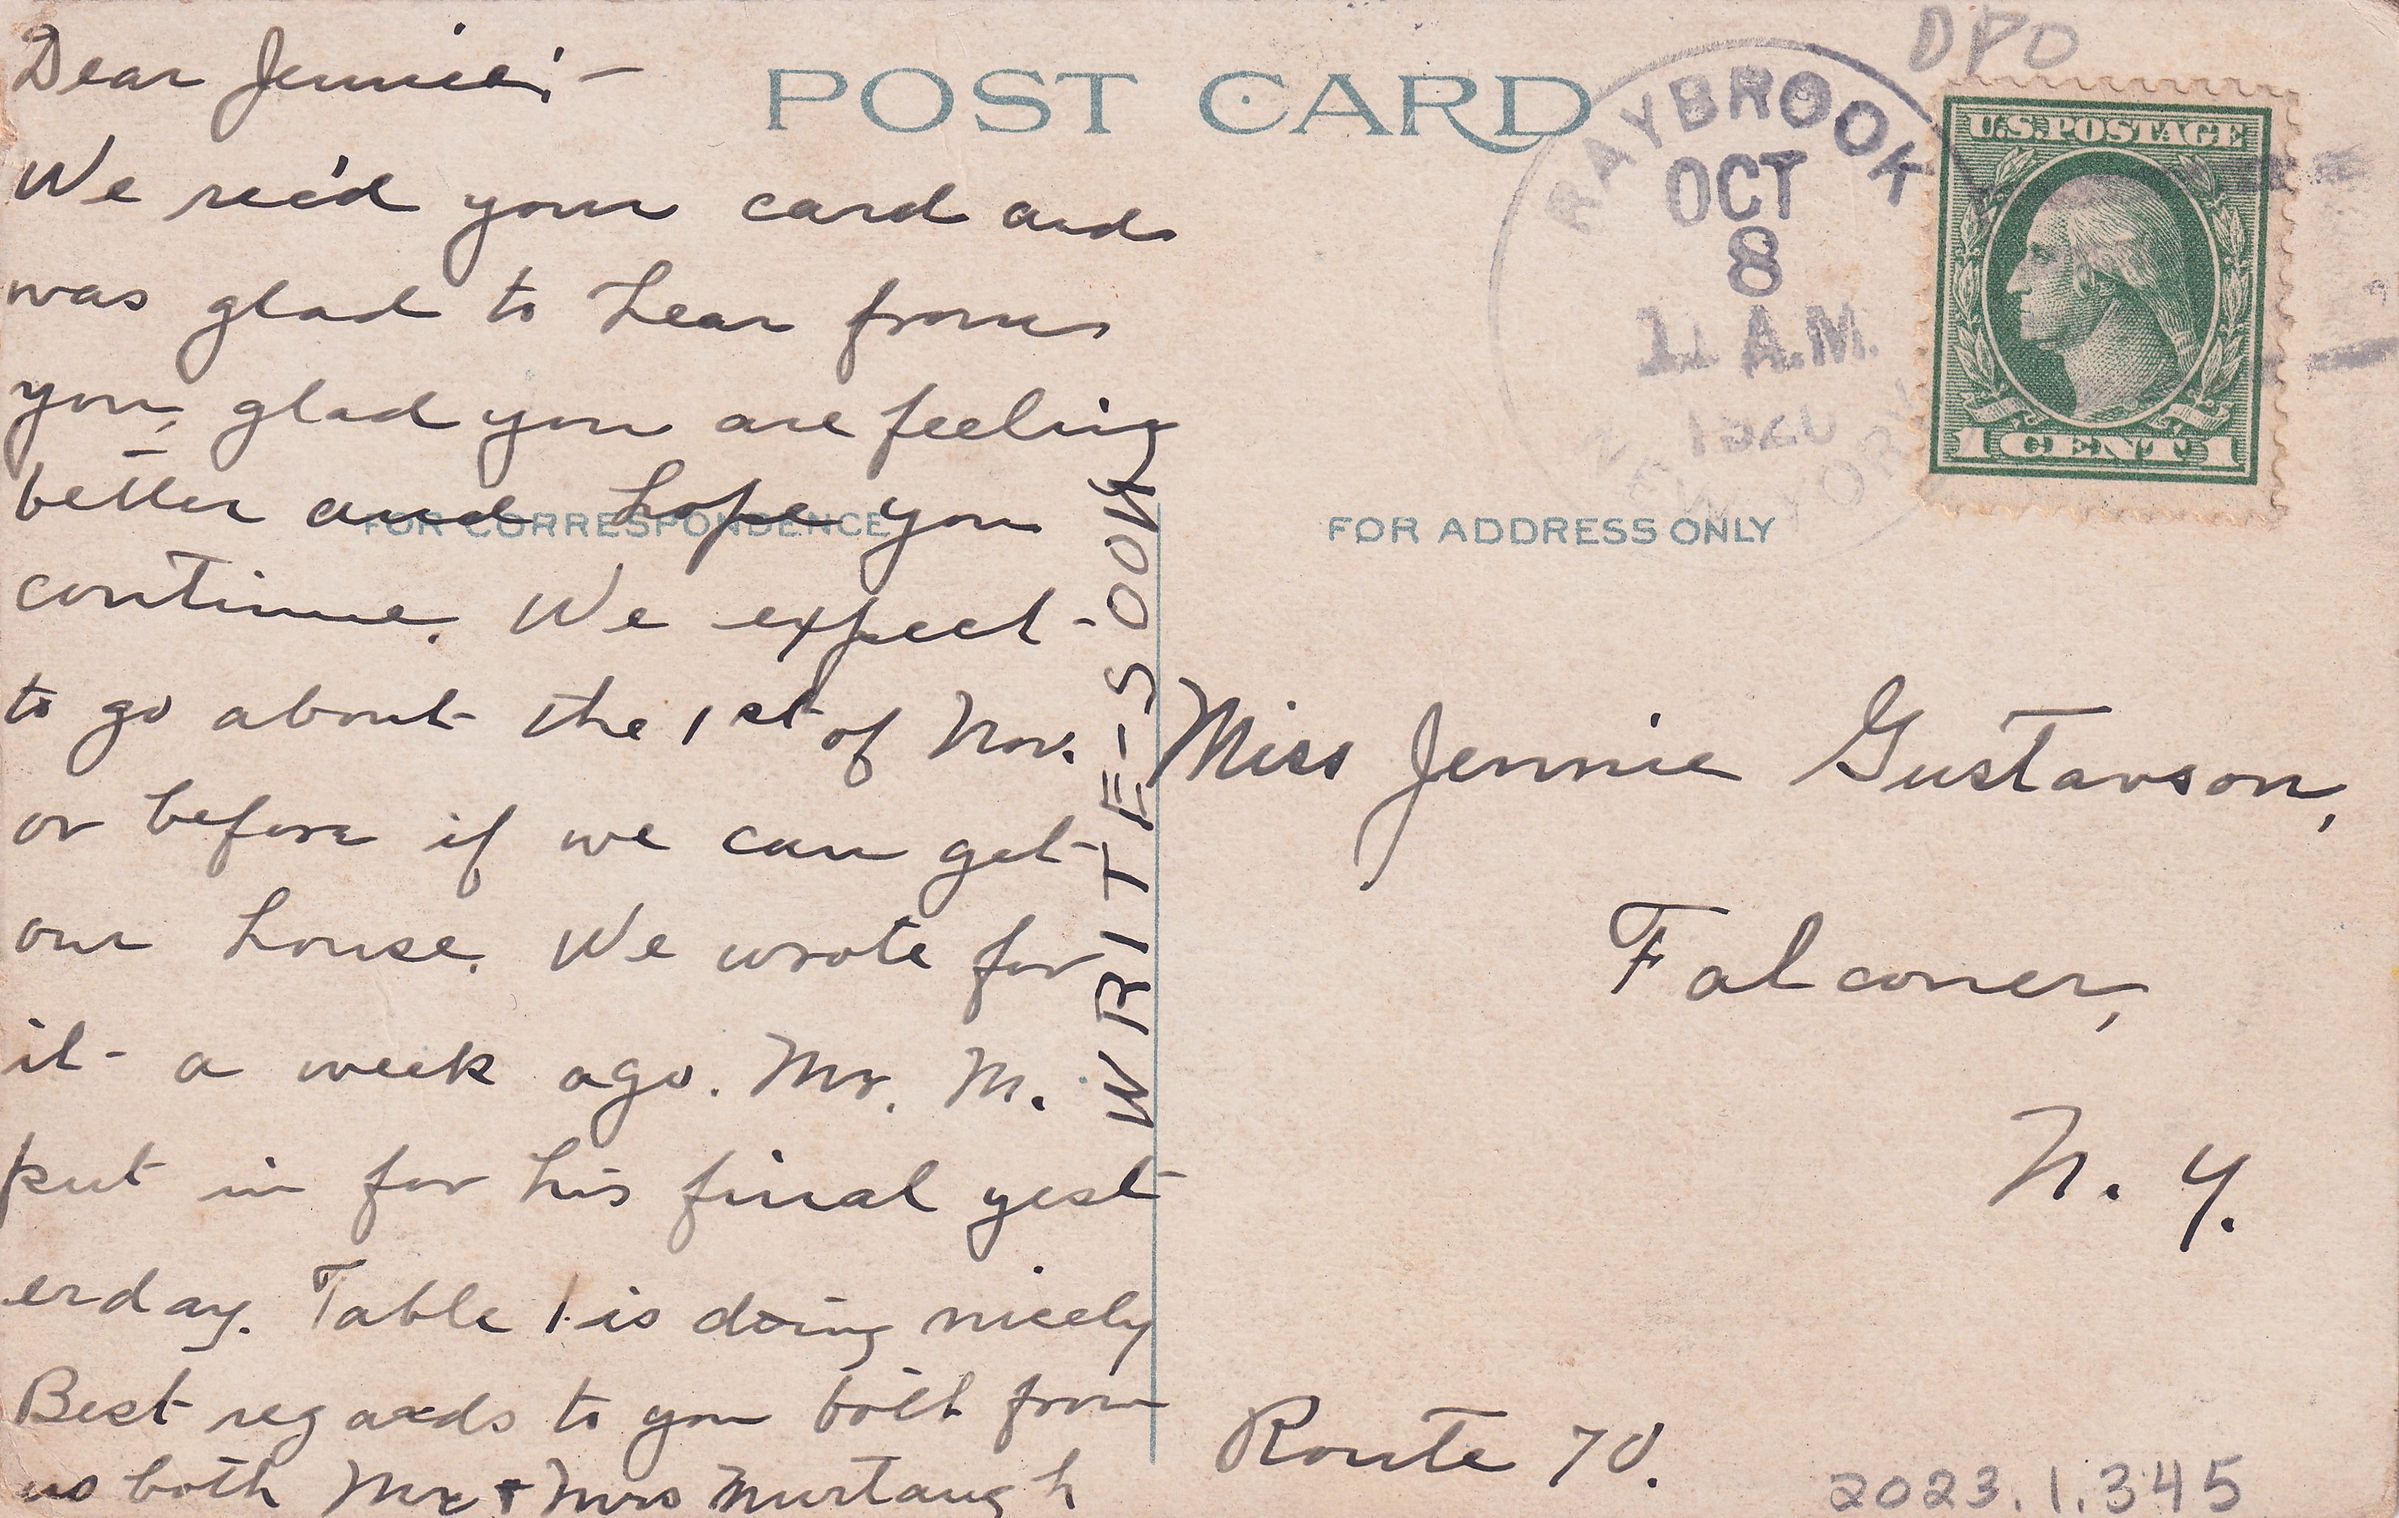 Dear Jennie:—
We rec'd your card and
was glad to hear from
you, glad you are feeling
better and hope you
continue. We expect
to go about the 1st of Nov.
or before if we can get
our house. We wrote for
it a week ago. Mr. M.
put in for his final yest
erday. Table 1 is doing nicely
Best regards to you both from
us both Mr & Mrs Murtaugh
WRITE-SOON
POST CARD
FOR CORRESPONDENCE
FOR ADDRESS ONLY
DPO
RAYBROOK
OCT
8
11 A.M.
1920
NEW YORK
U.S. POSTAGE
1 CENT 1
Miss Jennie Gustavson,
Falconer,
N. Y.
Route 70.
2023.1.345